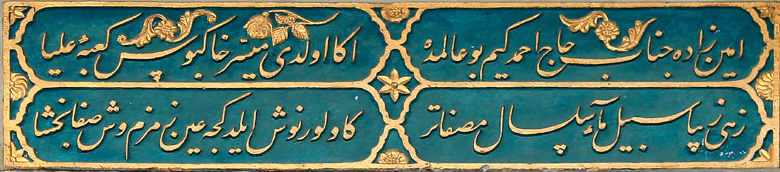 امین زاده جناب حاج احمد کیم بو عالمده
اکا اولدی میسر خاکبوس کعبهٔ علیا
زهی زیبا سبیل ماء سلسال مصفاتر
کاولور نوش ایلدکجه عین زمزم وش صفا بخشا